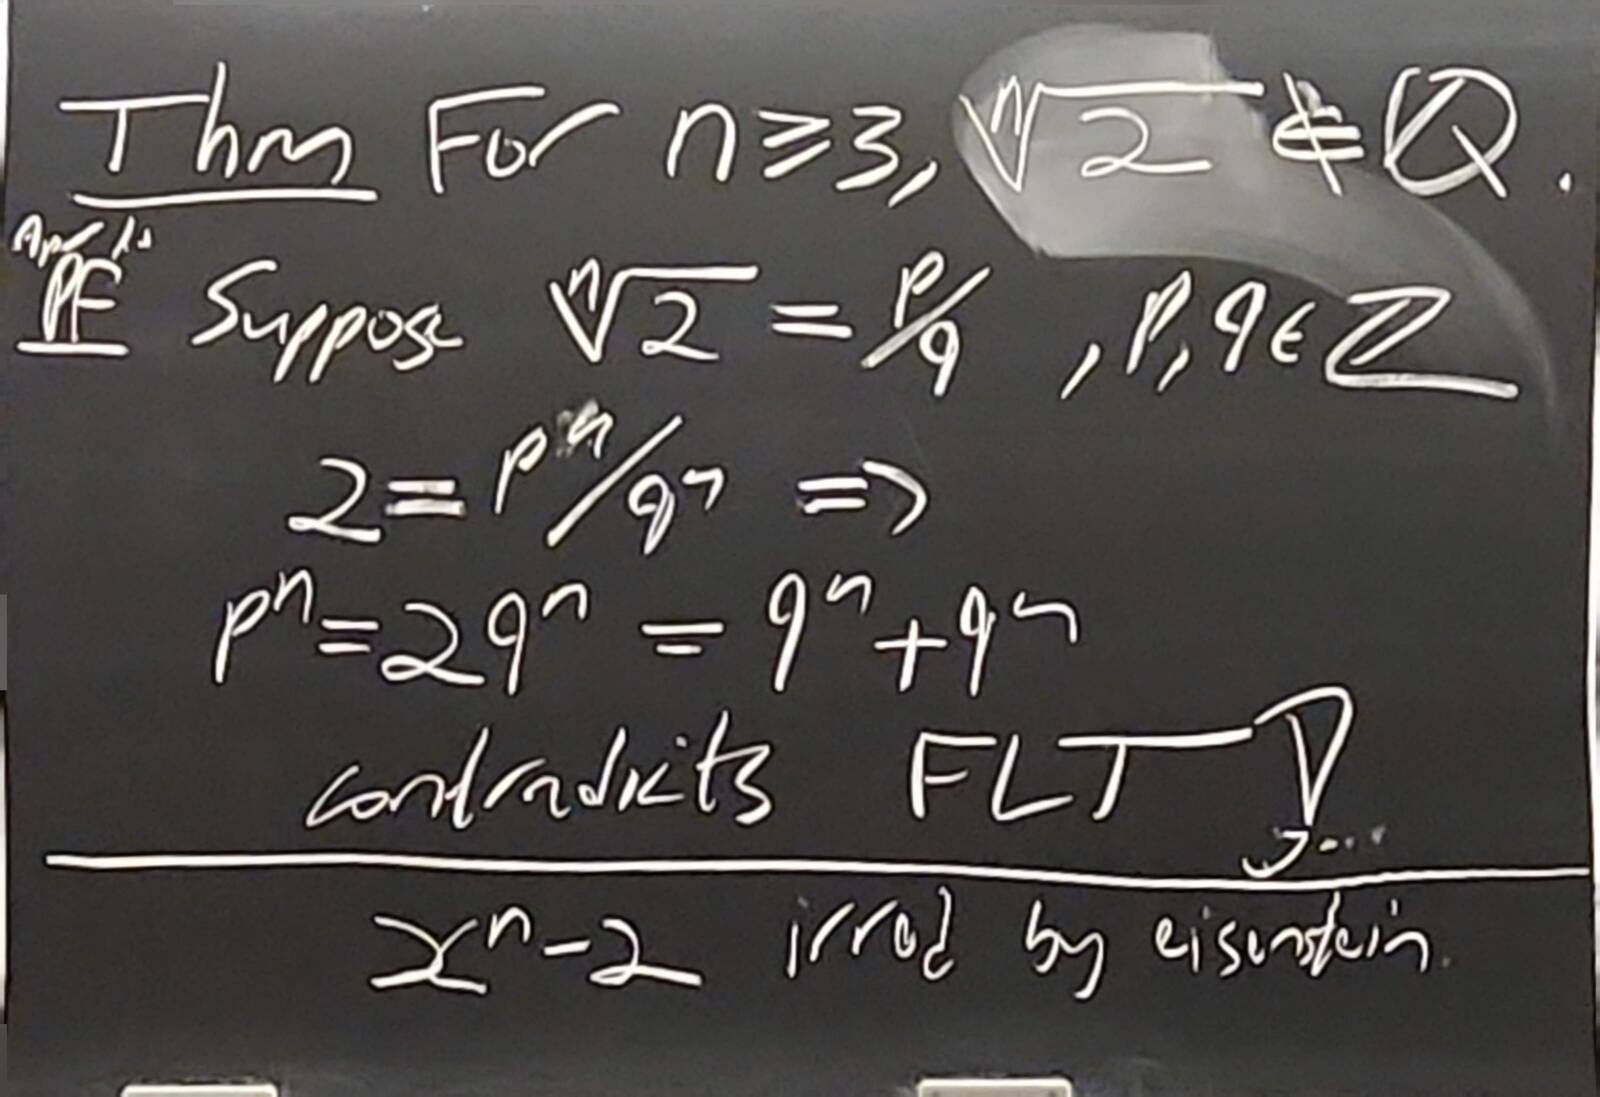 Thm For n≥3, ⁿ√2 ∉ ℚ.
PF Suppose ⁿ√2 = p/q , p, q ∈ ℤ
2 = pⁿ/qⁿ =>
pⁿ = 2qⁿ = qⁿ + qⁿ
contradicits FLT
xⁿ - 2 irred by eisenstein.